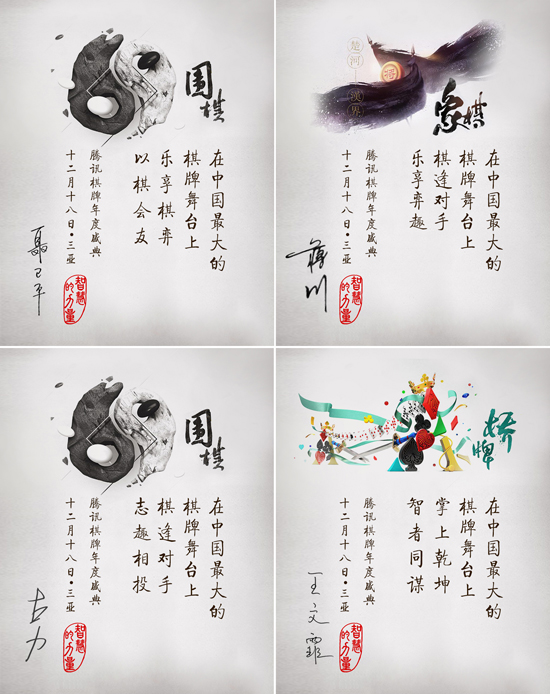 围棋
在中国最大的
棋牌舞台上
乐享棋弈
以棋会友
腾讯棋牌年度盛典
十二月十八日•三亚
聶卫平
智慧
的力量
楚河一漢界
象棋
在中国最大的
棋牌舞台上
棋逢对手
乐享弈趣
腾讯棋牌年度盛典
十二月十八日•三亚
蒋川
智慧
的力量
围棋
在中国最大的
棋牌舞台上
棋逢对手
志趣相投
腾讯棋牌年度盛典
十二月十八日•三亚
古力
智慧
的力量
桥牌
在中国最大的
棋牌舞台上
掌上乾坤
智者同谋
腾讯棋牌年度盛典
十二月十八日•三亚
王文霏
智慧
的力量